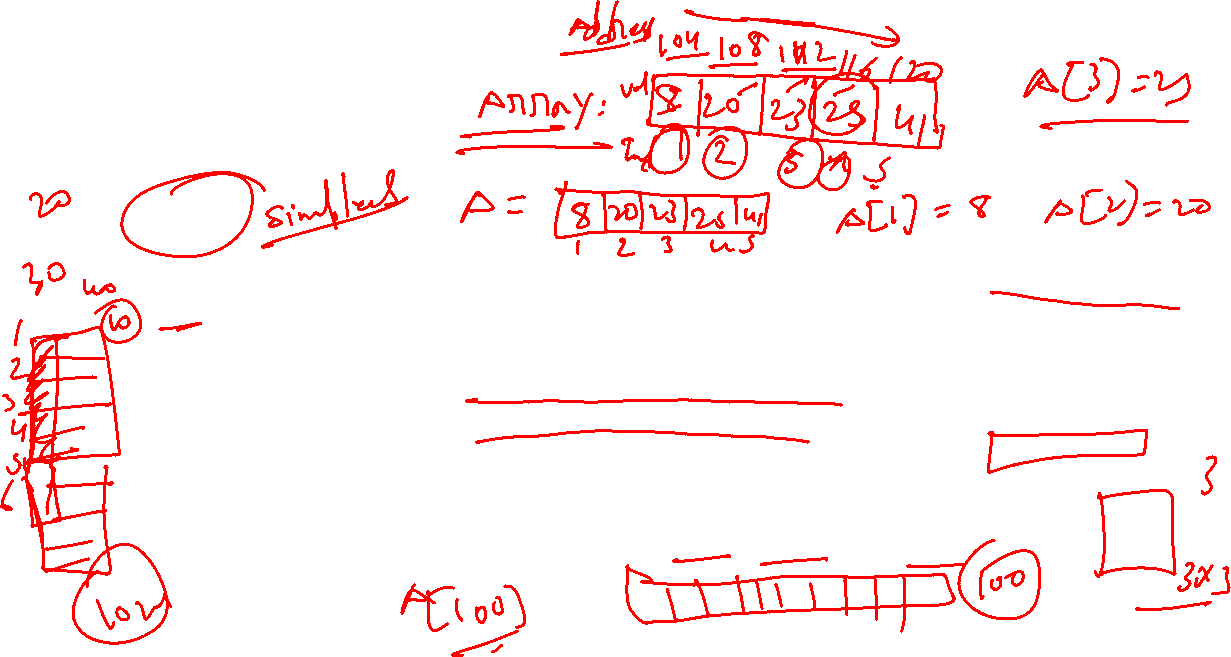 Address
104 108 112 116 120
Array: val 8 20 23 25 41
1 2 3 4 5
A[3]=23
20
simplest
A = 8 20 23 25 41
1 2 3 4 5
A[1] = 8
A[2]=20
30 40
10
1
2
3
4
5
6
3
3x3
A[100]
100